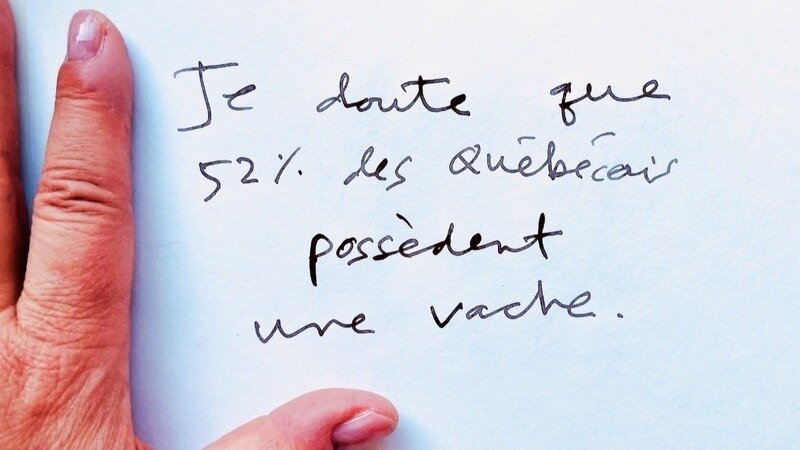 Je doute que
52% des Québécois
possèdent
une vache.